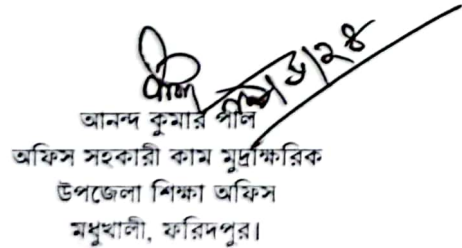 পাল
আনন্দ কুমার পাল
অফিস সহকারী কাম মুদ্রাক্ষরিক
উপজেলা শিক্ষা অফিস
মধুখালী, ফরিদপুর।